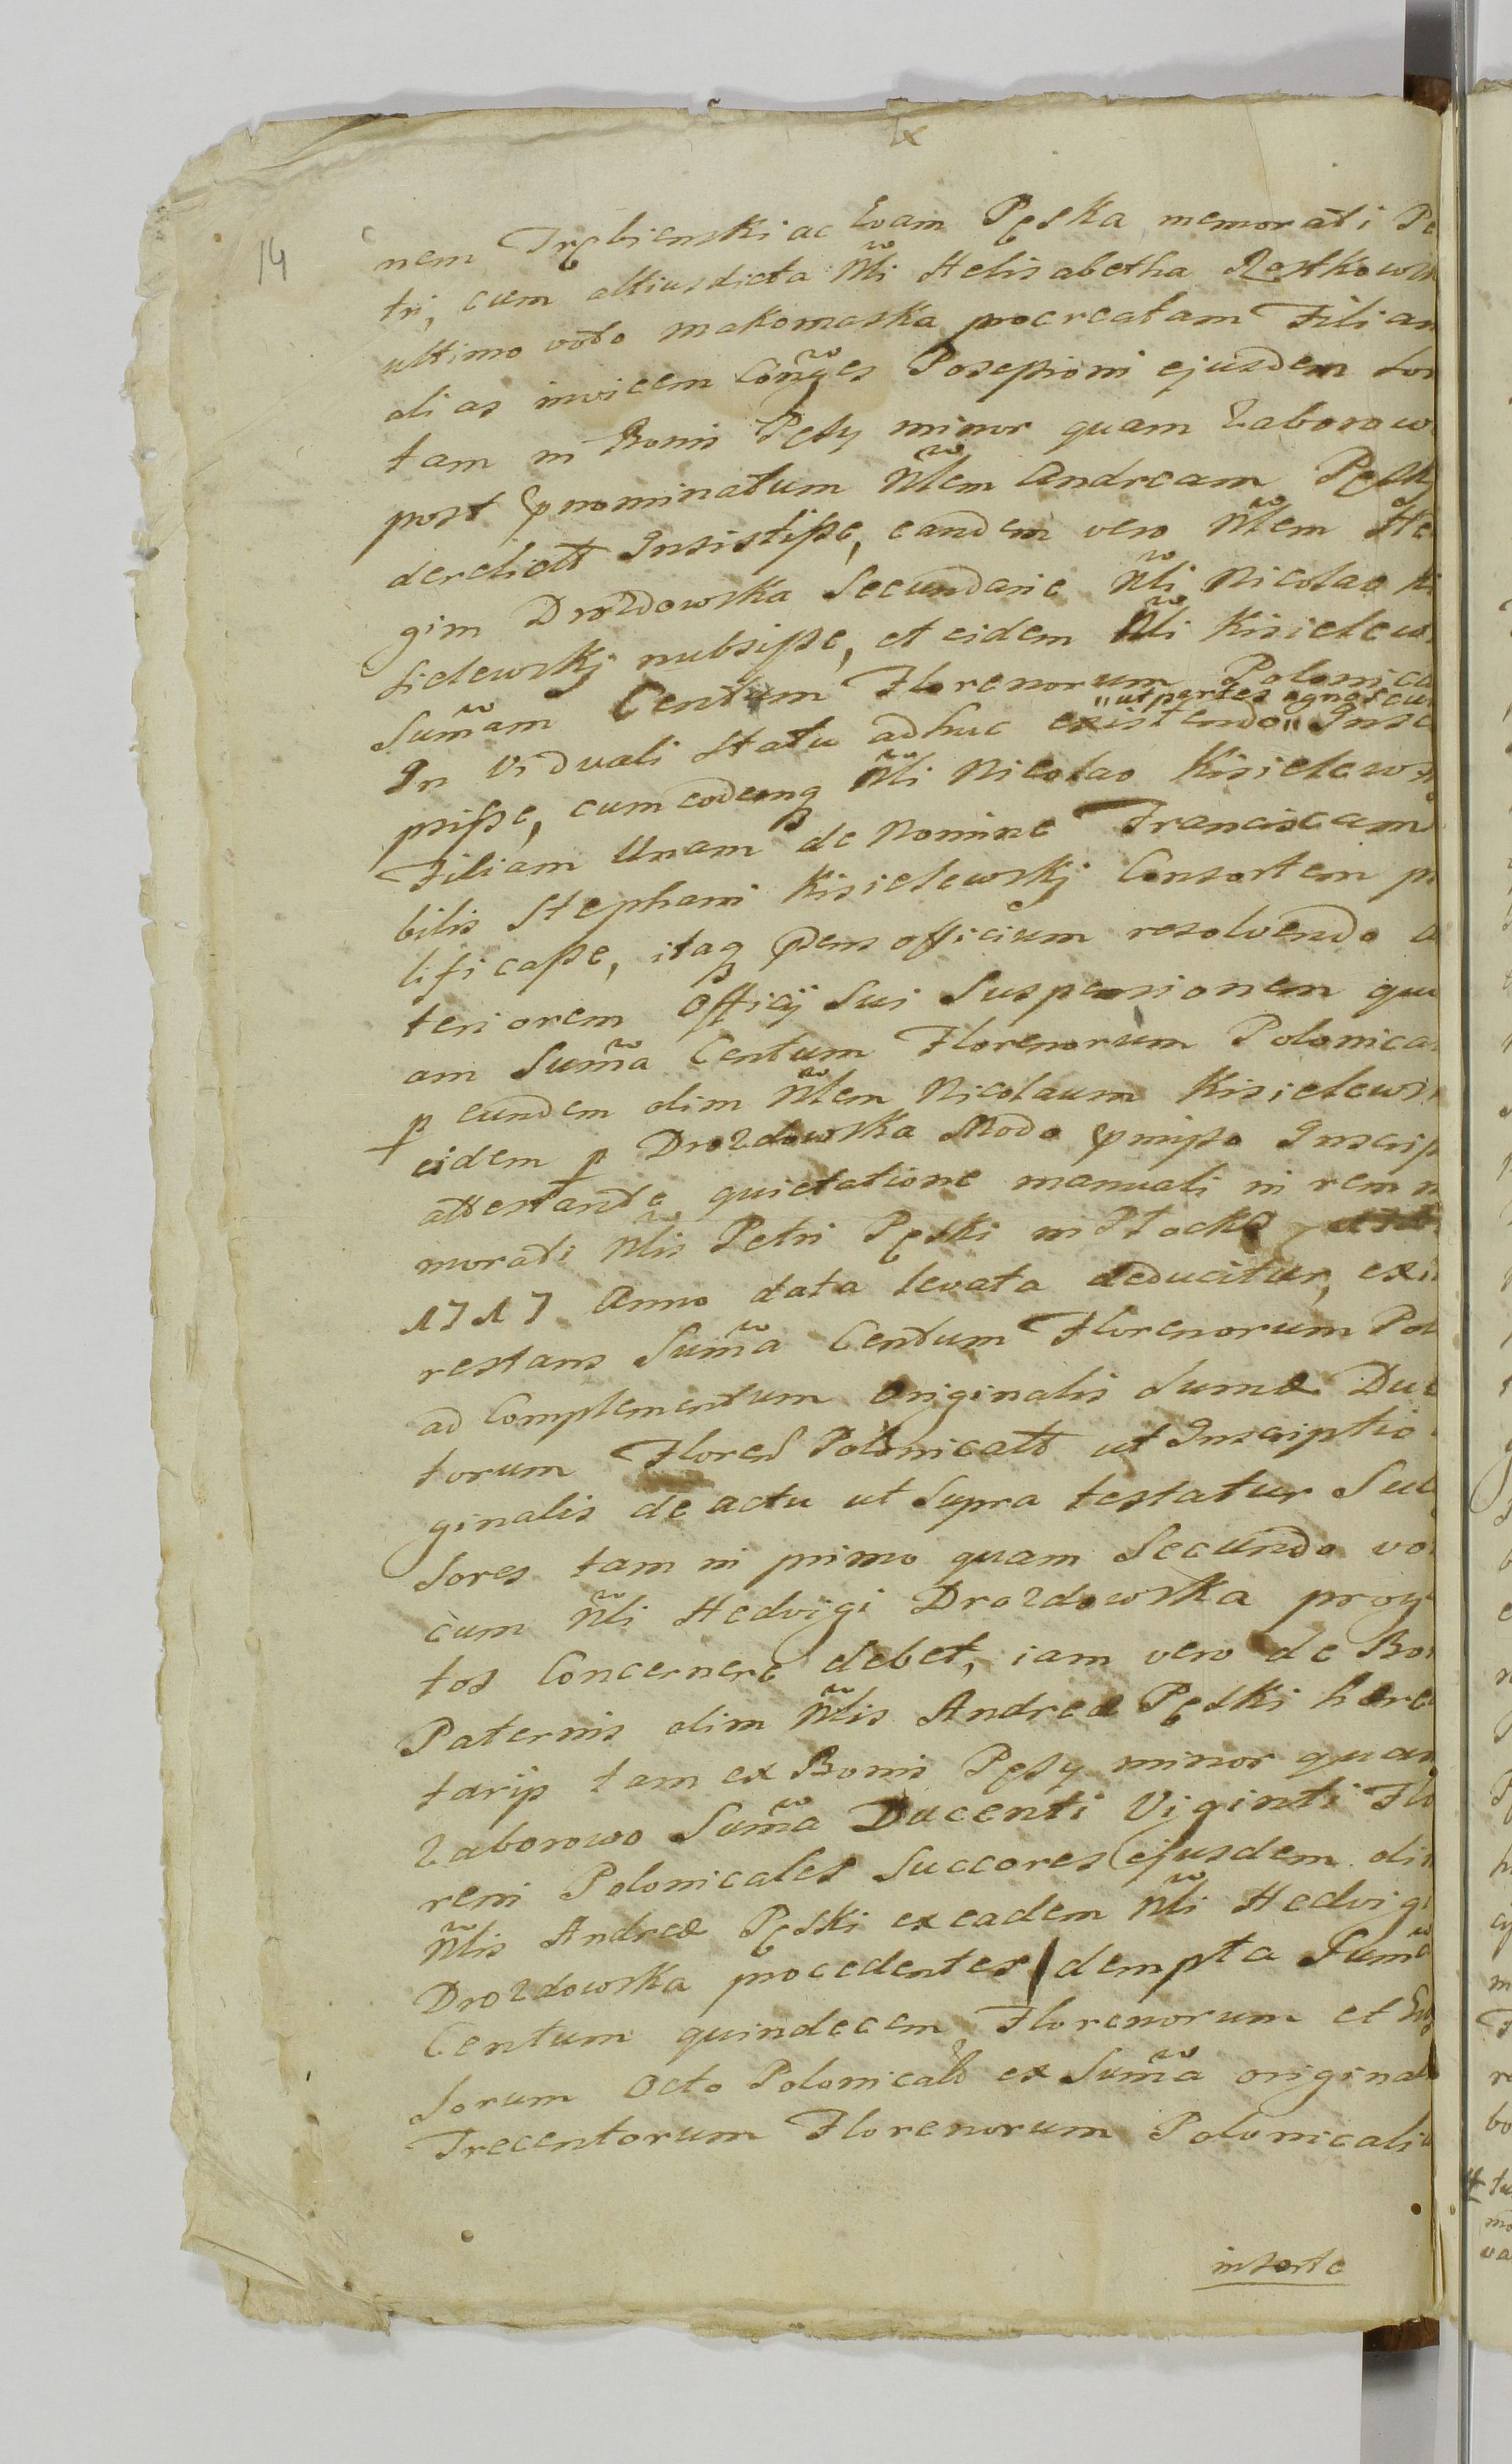 14
nem Trębienski ac Evam Pęska memorati Pe
tri, cum altiusdicta Nli Helisabetha Rostkows
ultimo voto makomaska procreatam Filiam
alias invicem Conges Posessioni ejusdem
tam in Bonis Pęsy minor quam Zaborow
post pnominatum Nlem Andream Pęsk
derelictt Insistisse, eandem vero Nlem He
gim Drozdowska Secundarie Nli Nicolao Ki
sielewskj nubsisse, et eidem Nli Kisielew
Sumam Centum Florenorum Polonica
"ut partes agnoscu
In Viduali Statu adhuc existendo" Insc
psisse, cum eodemq Nli Nicolao Kisielews
Filiam Unam de Nomine Franciscam
bilis Stephani Kisielewskj Consortem p
lificasse, itaq pdens officium resolvendo a
teriorem Officij Sui Suspensionem qu
am Suma Centum Florenorum Polonica
p eundem olim Nlem Nicolaum Kisielews
eidem p Drozdowska Modo pmisso Inscrip
attestante quietatione manuali in rem m
morati Nlis Petri Pęski in Płocko
1717 Anno data levata deducitur, ex
restans Suma Centum Florenorum Pol
ad Complementum Originalis Sumæ Duc
torum Floren Polonicall ut Inscriptio
ginalis de actu ut Supra testatur Suc
sores tam in primo quam Secundo vo
cum Nli Hedvigi Drozdowska progn
tos Concernere debet, iam vero de Bo
Paternis olim Nlis Andreæ Pęski hære
tarijs tam ex Bonis Pęsy minor quam
Zaborowo Suma Ducenti Viginti Flo
reni Polonicales Succores (ejusdem olim
Nlis Andreæ Pęski ex eadem Nli Hedvigi
Drozdowska procedentes) dempta Suma
Centum quindecem Florenorum et
sorum Octo Polonicall ex Suma original
Trecentorum Florenorum Polonicali
insorte